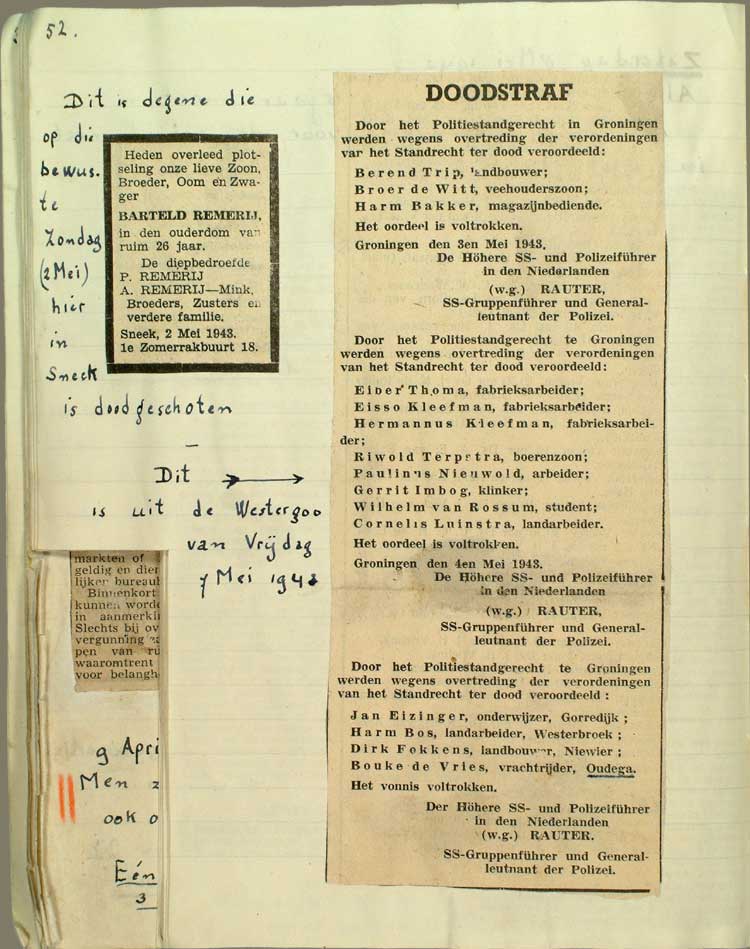 52.
Dit is degene die
op die
bewus.
te
Zondag
(2 Mei)
hier
in
Sneek
is doodgeschoten
Heden overleed plot-
seling onze lieve Zoon,
Broeder, Oom en Zwa-
ger
BARTELD REMERIJ,
in den ouderdom van
ruim 26 jaar.
De diepbedroefde
P. REMERIJ
A. REMERIJ—Mink,
Broeders, Zusters en
verdere familie.
Sneek, 2 Mei 1943.
1e Zomerrakbuurt 18.
Dit
is uit de Westergoo
van Vrijdag
7 Mei 1943
markten of
geldig en dier
lijker bureaul
Binnenkort
kunnen worde
in aanmerkin
Slechts bij ov
vergunning
pen van ru
waaromtrent
voor belangh
9 Apri
Men z
ook o
Eén
3
DOODSTRAF
Door het Politiestandgerecht in Groningen
werden wegens overtreding der verordeningen
var het Standrecht ter dood veroordeeld:
Berend Trip, landbouwer;
Broer de Witt, veehouderszoon;
Harm Bakker, magazijnbediende.
Het oordeel is voltrokken.
Groningen den 3en Mei 1943.
De Höhere SS- und Polizeiführer
in den Niederlanden
(w.g.) RAUTER,
SS-Gruppenführer und General-
leutnant der Polizei.
Door het Politiestandgerecht te Groningen
werden wegens overtreding der verordeningen
van het Standrecht ter dood veroordeeld:
Eiber Thoma, fabrieksarbeider;
Eisso Kleefman, fabrieksarbeider;
Hermannus Kleefman, fabrieksarbei-
der;
Riwold Terpstra, boerenzoon;
Paulinus Nieuwold, arbeider;
Gerrit Imbog, klinker;
Wilhelm van Rossum, student;
Cornelis Luinstra, landarbeider.
Het oordeel is voltrokken.
Groningen den 4en Mei 1943.
De Höhere SS- und Polizeiführer
in den Niederlanden
(w.g.) RAUTER,
SS-Gruppenführer und General-
leutnant der Polizei.
Door het Politiestandgerecht te Groningen
werden wegens overtreding der verordeningen
van het Standrecht ter dood veroordeeld :
Jan Eizinger, onderwijzer, Gorredijk ;
Harm Bos, landarbeider, Westerbroek ;
Dirk Fokkens, landbouwer, Niewier ;
Bouke de Vries, vrachtrijder, Oudega.
Het vonnis voltrokken.
Der Höhere SS- und Polizeiführer
in den Niederlanden
(w.g.) RAUTER.
SS-Gruppenführer und General-
leutnant der Polizei.